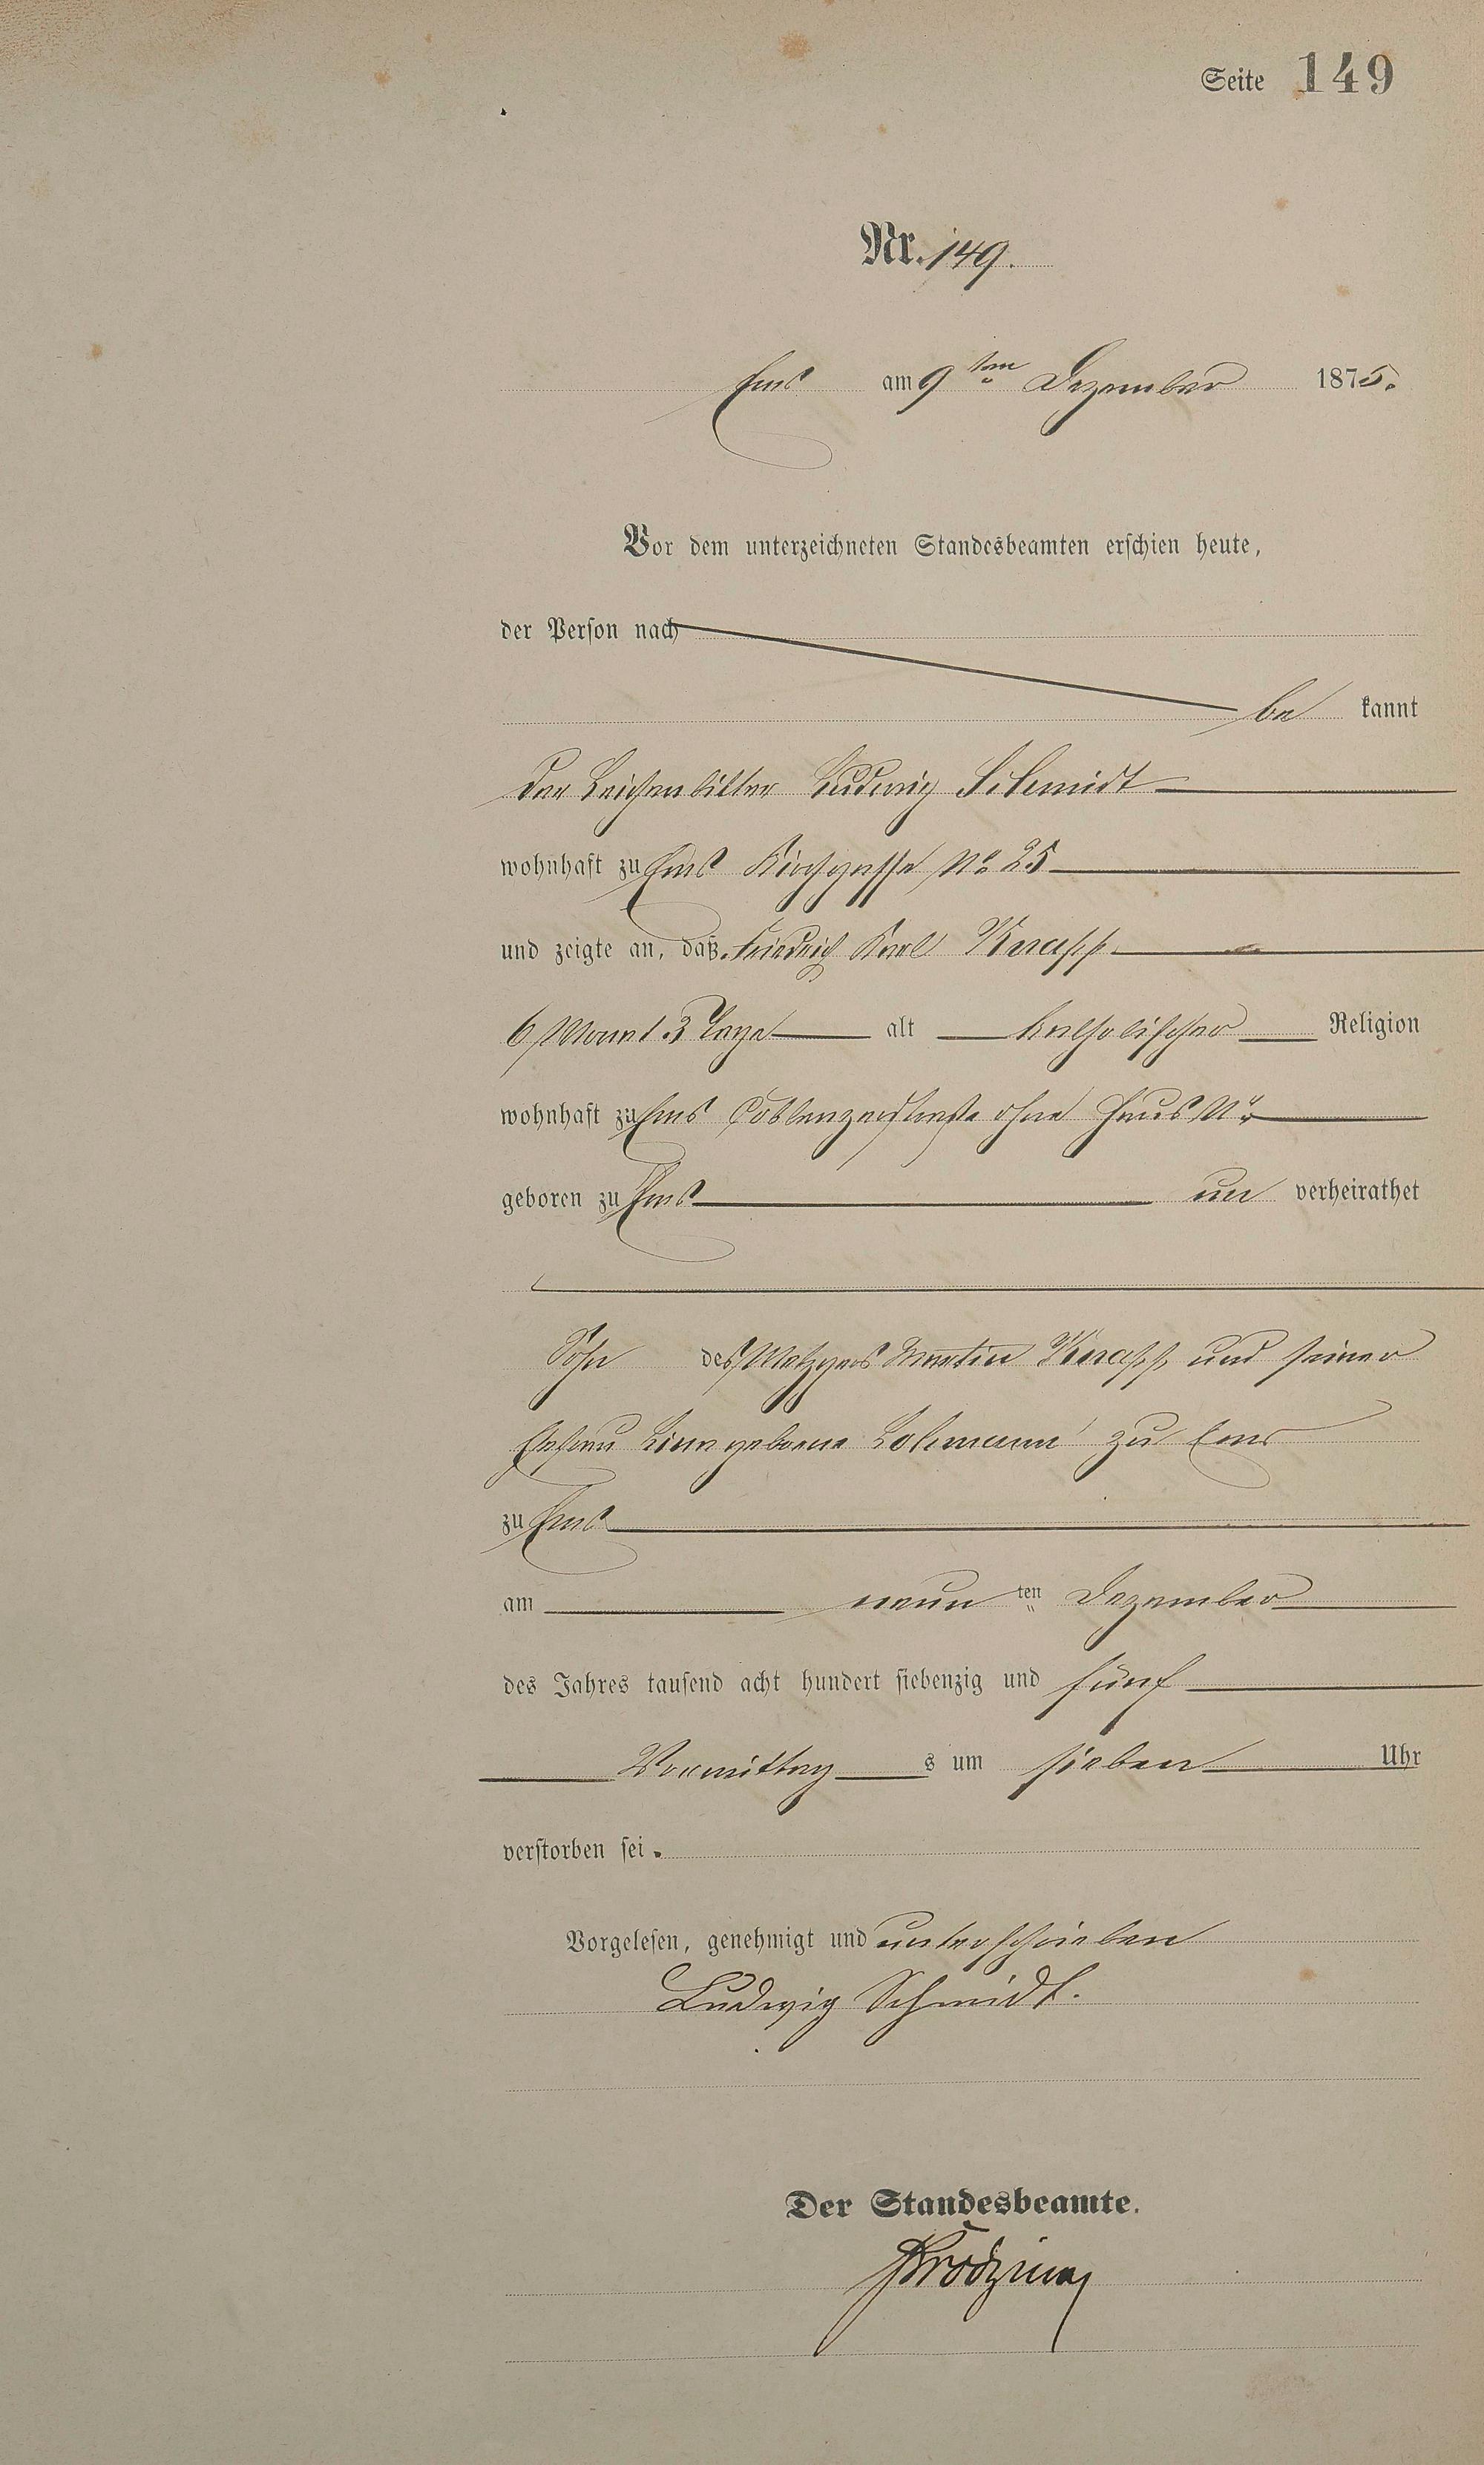 Seite 149
Nr. 149.
Ems am 9ten Dezember 1875.
Vor dem unterzeichneten Standesbeamten erschien heute,
der Person nach
be kannt
der Leichenbitter Ludwig Schmidt
wohnhaft zu Ems Kirchgasse No 25
und zeigte an, daß Friedrich Karl Knapp
6 Monat 3 Tage alt katholischer Religion
wohnhaft zu Ems Coblenzerstraße ohne Haus No
geboren zu Ems un verheirathet
Sohn des Metzgers Martin Knapp und seiner
Ehefrau geborne Lohmann zu Ems
zu Ems
am neun ten Dezember
des Jahres tausend acht hundert siebenzig und fünf
Vormittag s um sieben Uhr
verstorben sei.
Vorgelesen, genehmigt und unterschrieben
Ludwig Schmidt.
Der Standesbeamte.